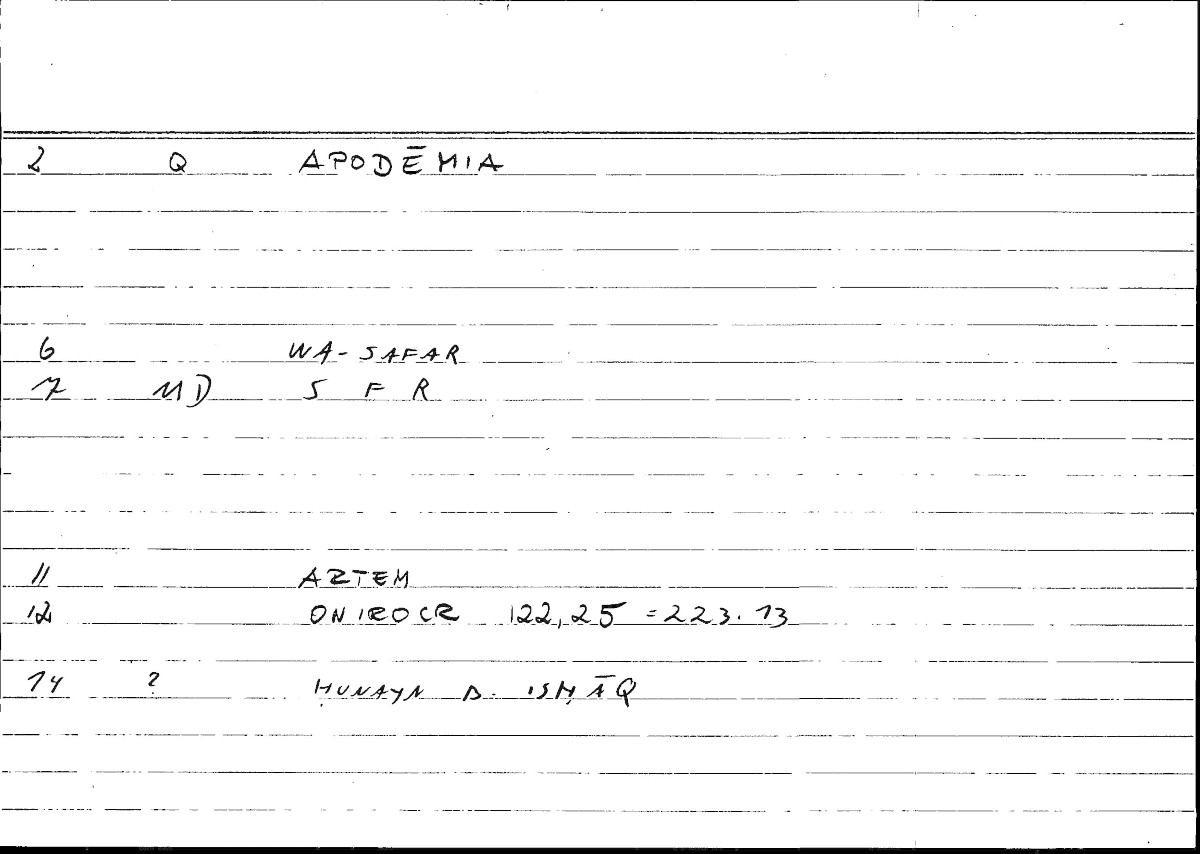 2 Q APODĒMIA
6 WA-SAFAR
7 MD S F R
11 ARTEM
12 ONIROCR 122,25 = 223.13
14 ? ḤUNAYN B. ISḤĀQ